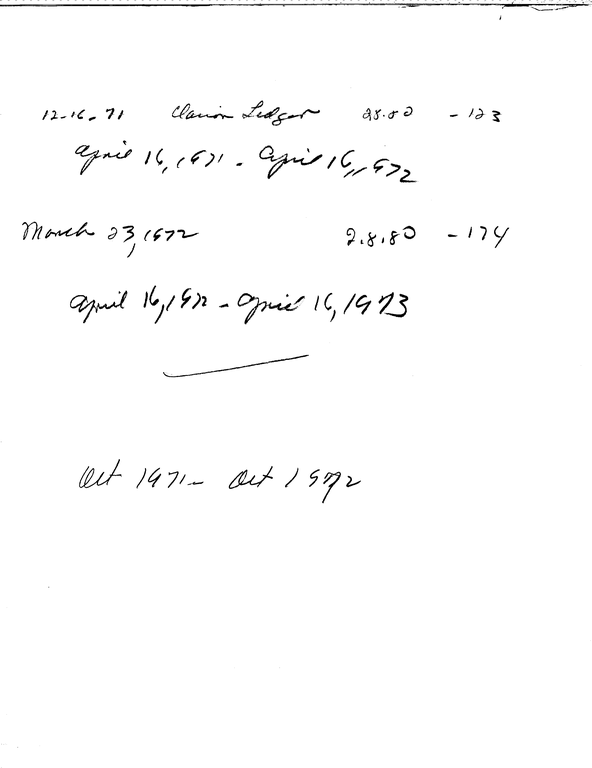 12-16-71 Clarion Ledger 28.80 - 123
April 16, 1971 - April 16, 1972
March 23, 1972 28.80 - 174
April 16, 1972 - April 16, 1973
Oct 1971 - Oct 1972